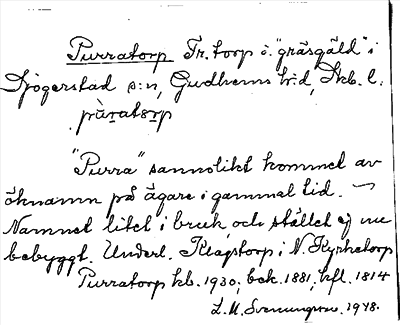 Purratorp Fr. torp å. "gräsgäld" i
Sjogerstad s:n, Gudhems h:d, Skb. l.
pùratorp
"Purra" sannolikt kommet av
öknamn på ägare i gammal tid. —
Namnet litet i bruk, och stället ej nu
bebyggt. Underl. Klapstorp i N. Kyrketorp
Purratorp kb. 1930. bek. 1881, hfl. 1814
L. M. Svenungsson. 1948.